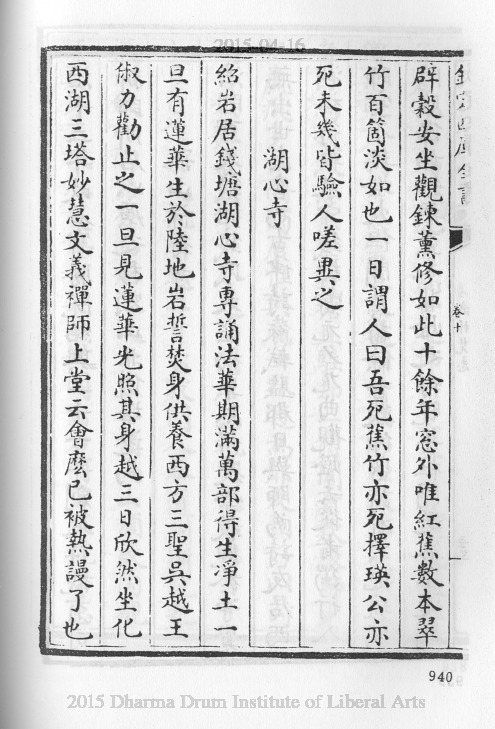 2015-04-16
欽定四庫全書
卷十
辟穀安坐觀鍊薰修如此十餘年窓外唯紅蕉數本翠
竹百箇淡如也一日謂人曰吾死蕉竹亦死擇瑛公亦
死未幾皆驗人嗟異之
湖心寺
紹岩居錢塘湖心寺專誦法華期滿萬部得生淨土一
旦有蓮華生於陸地岩誓焚身供養西方三聖吳越王
俶力勸止之一旦見蓮華光照其身越三日欣然坐化
西湖三塔妙慧文義禪師上堂云會麽已被熱謾了也
940
2015 Dharma Drum Institute of Liberal Arts